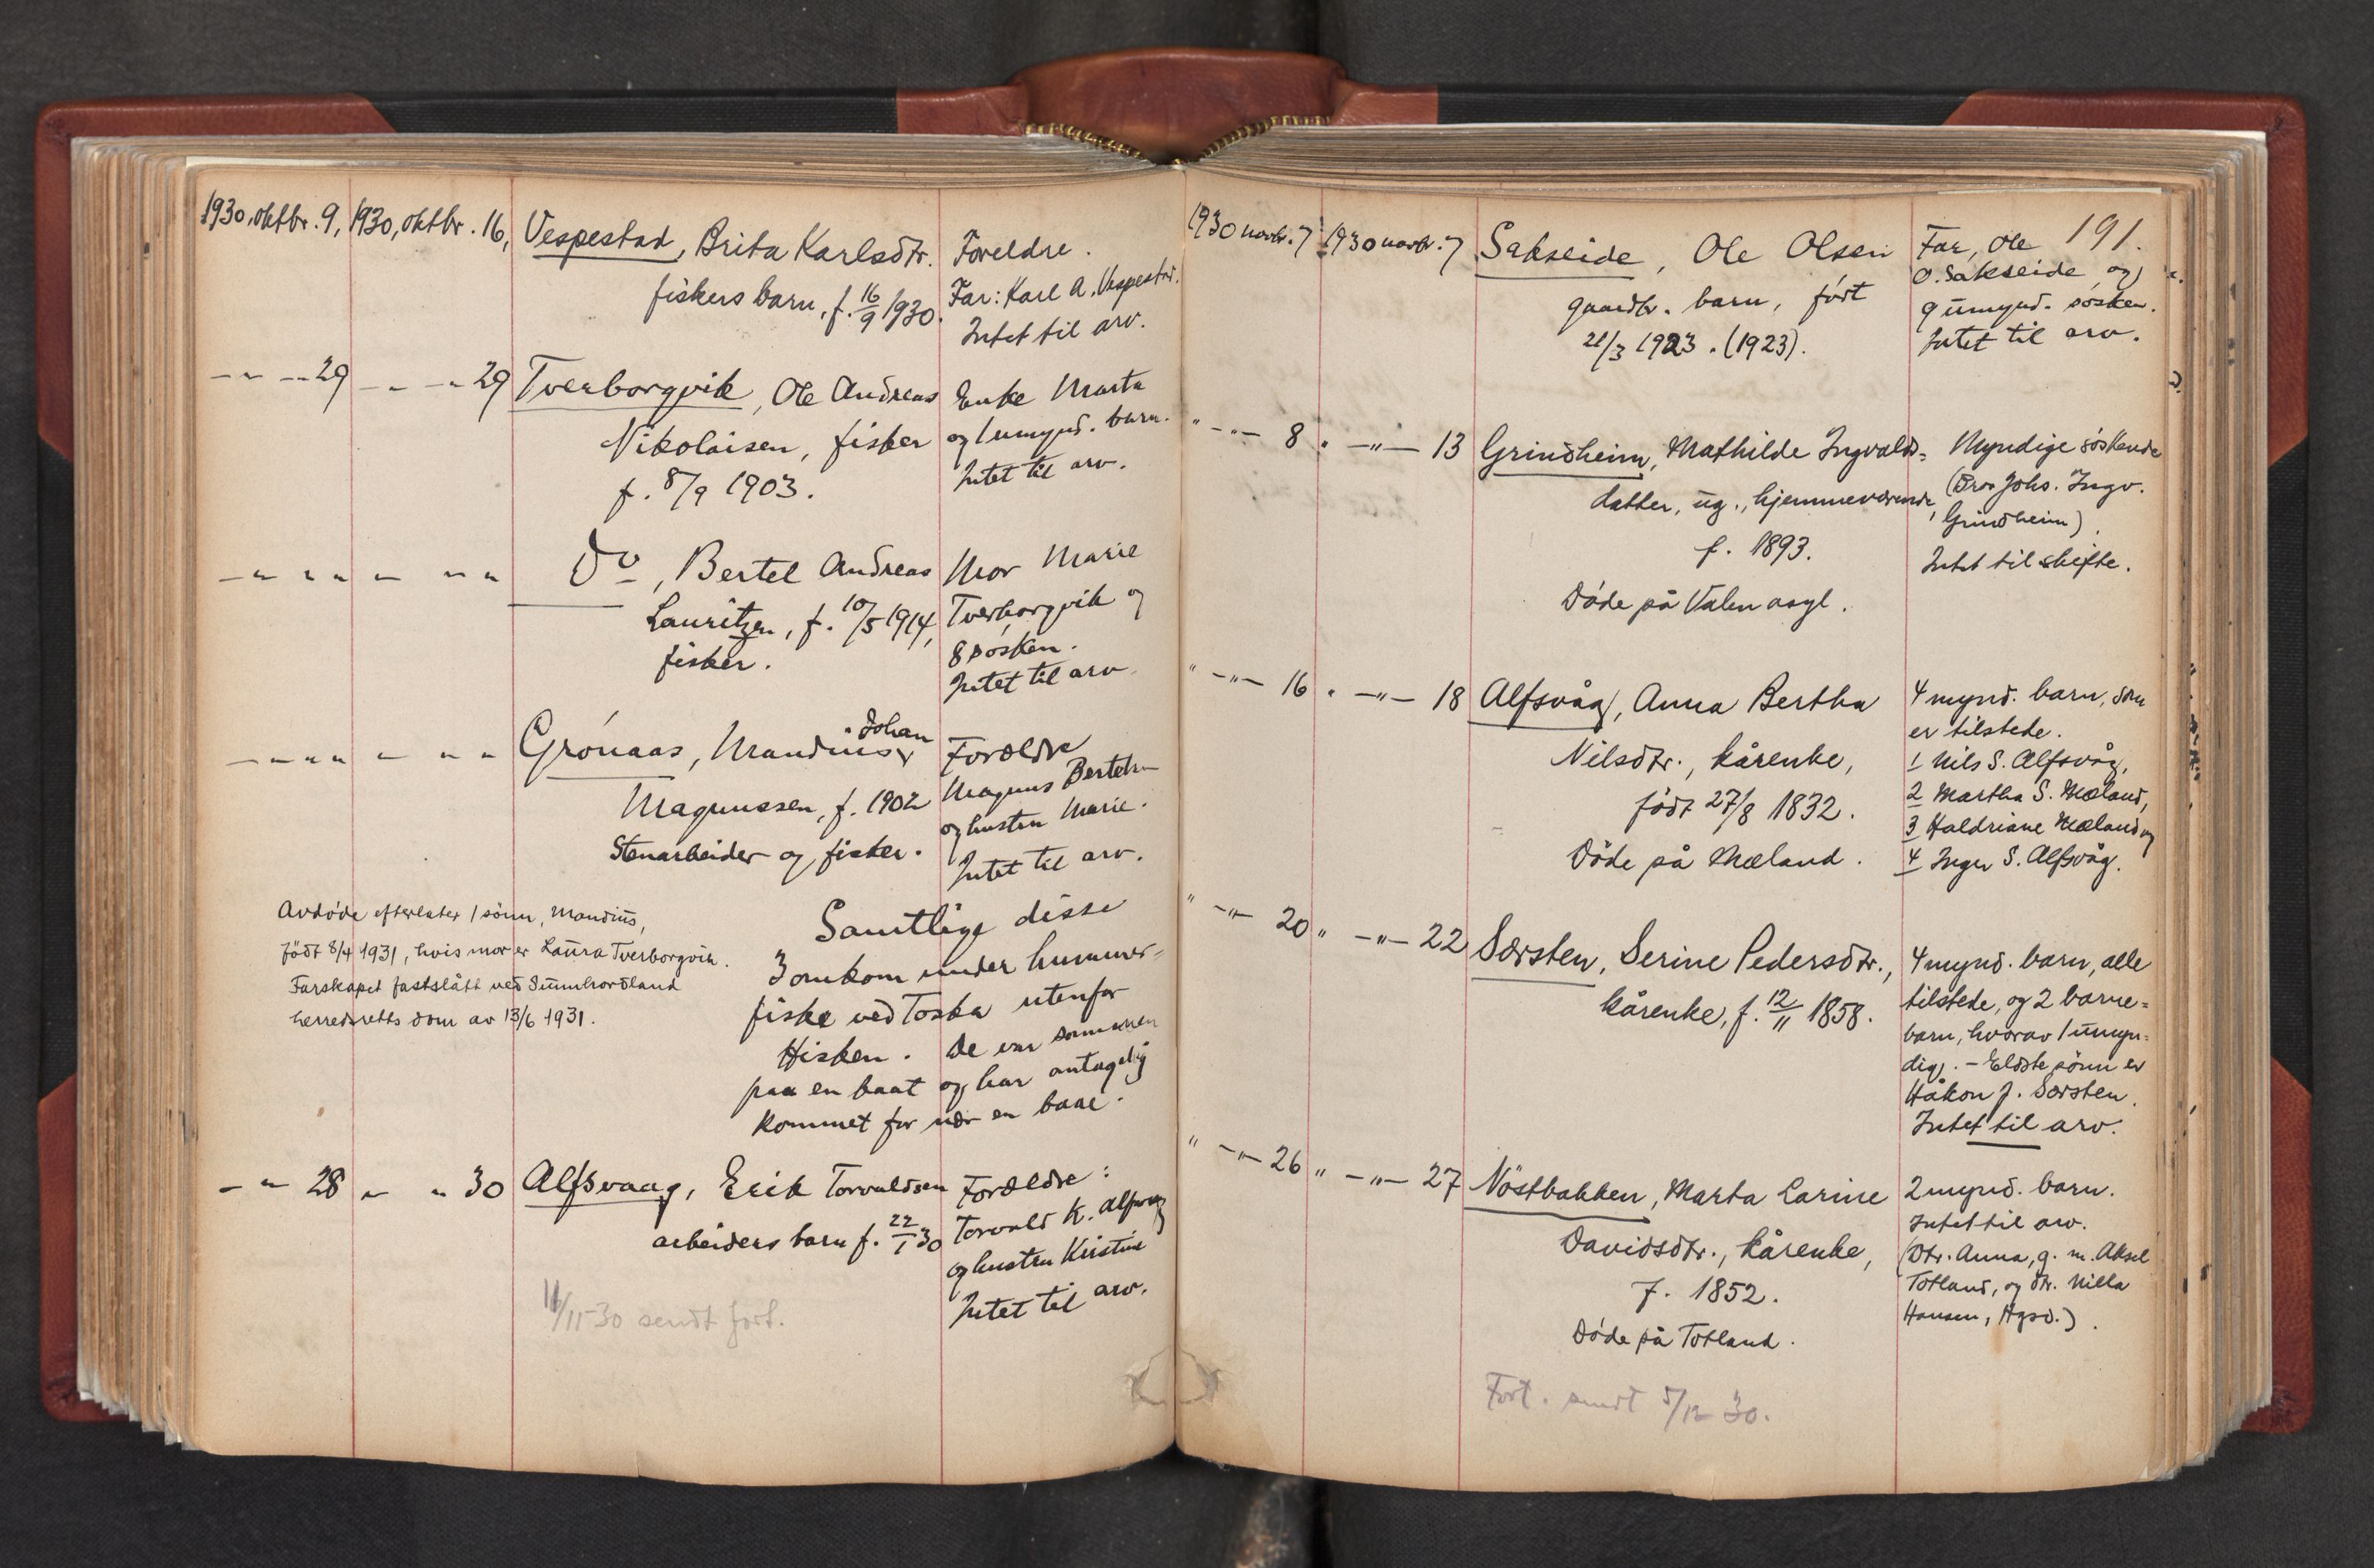 1930, oktbr. 9, 1930, oktbr. 16, Vespestad, Brita Karlsdtr. Foreldre.
fiskers barn, f. 16/9 1930. Far: Karl A. Vespestad.
Intet til arv.
— " — " 29 — " — " 29 Tverborgvik, Ole Andreas Enke Marta
Nikolaisen, fisker og 1 umynd. barn.
f. 8/9 1903. Intet til arv.
— " " " — " " Do, Bertel Andreas Mor Marie
Lauritzen, f. 10/5 1914, Tverborgvik og
fisker. 8 søsken.
Intet til arv.
— " " " — " " Grønaas, Mandius Johan Forældre
Magnussen, f. 1902 Magnus Bertels
Stenarbeider og fisker. og hustru Marie.
Intet til arv.
Avdøde efterlater 1 sønn, Mandius,
født 8/4 1931, hvis mor er Laura Tverborgvik.
Farskapet fastslått ved Sunnhordland
herredsretts dom av 13/6 1931.
Samtlige disse
3 omkom under hummer=
fiske ved Toska utenfor
Hisken. De var sammen
paa en baat og har antagelig
kommet for nær en baae.
— " 28 " " 30 Alfsvaag, Erik Torvaldsen Forældre:
arbeiders barn f. 22/1 30 Torvald K. Alfsvaag
og hustru Kristine
Intet til arv.
11/11-30 sendt fort.
191.
1930 novbr. 7 1930 novbr. 7 Sakseide, Ole Olsen Far, Ole
O. Sakseide og
gaardbr. barn, født 9 umynd. søsken.
21/3 1923. (1923). Intet til arv.
" — " — 8 " — " — 13 Grindheim, Mathilde Ingvalds= Myndige søskende
datter, ug., hjemmeværende, (Bror Johs. Ingv.
Grindheim).
f. 1893. Intet til skifte.
Døde på Valen asyl.
" — " — 16 " — " — 18 Alfsvåg, Anna Bertha 4 mynd. barn, som
er tilstede.
Nilsdtr., kårenke, 1 Nils S. Alfsvåg,
født 27/8 1832. 2 Martha S. Mæland,
3 Haldriane Mæland og
Døde på Mæland. 4 Inger S. Alfsvåg.
" — " — 20 " — " — 22 Sørsten, Serine Pedersdtr., 4 mynd. barn, alle
kårenke, f. 12/11 1858. tilstede, og 2 barne=
barn, hvorav 1 umyn=
dig. - Eldste sønn er
Håkon J. Sørsten.
Intet til arv.
" — " — 26 " — " — 27 Nøstbakken, Marta Larine 2 mynd. barn.
Intet til arv.
Davidsdtr., kårenke, (Dtr. Anna, g. m. Aksel
f. 1852. Totland, og dtr. Nilla
Hansen, Hgsd.).
Døde på Totland.
Fort. sendt 5/12 30.